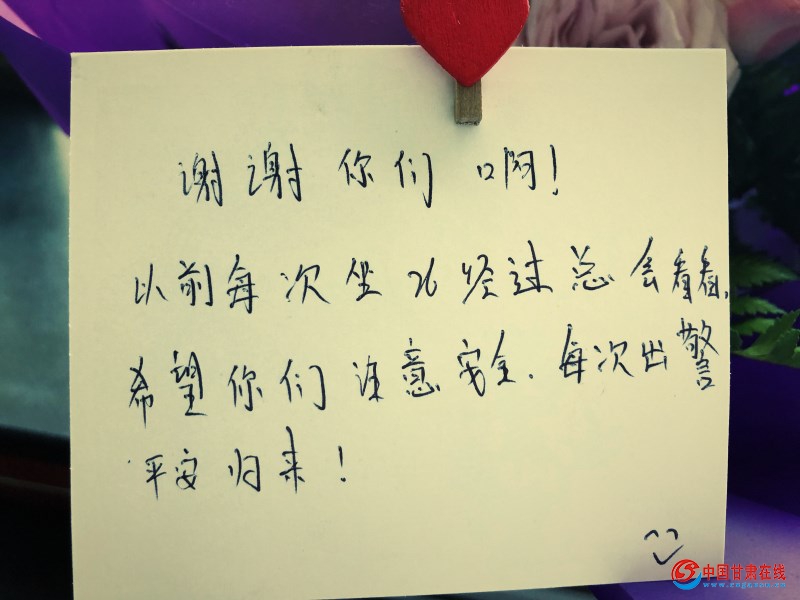 谢谢你们啊!
以前每次坐26经过总会看看,
希望你们注意安全.每次出警
平安归来!
中国甘肃在线